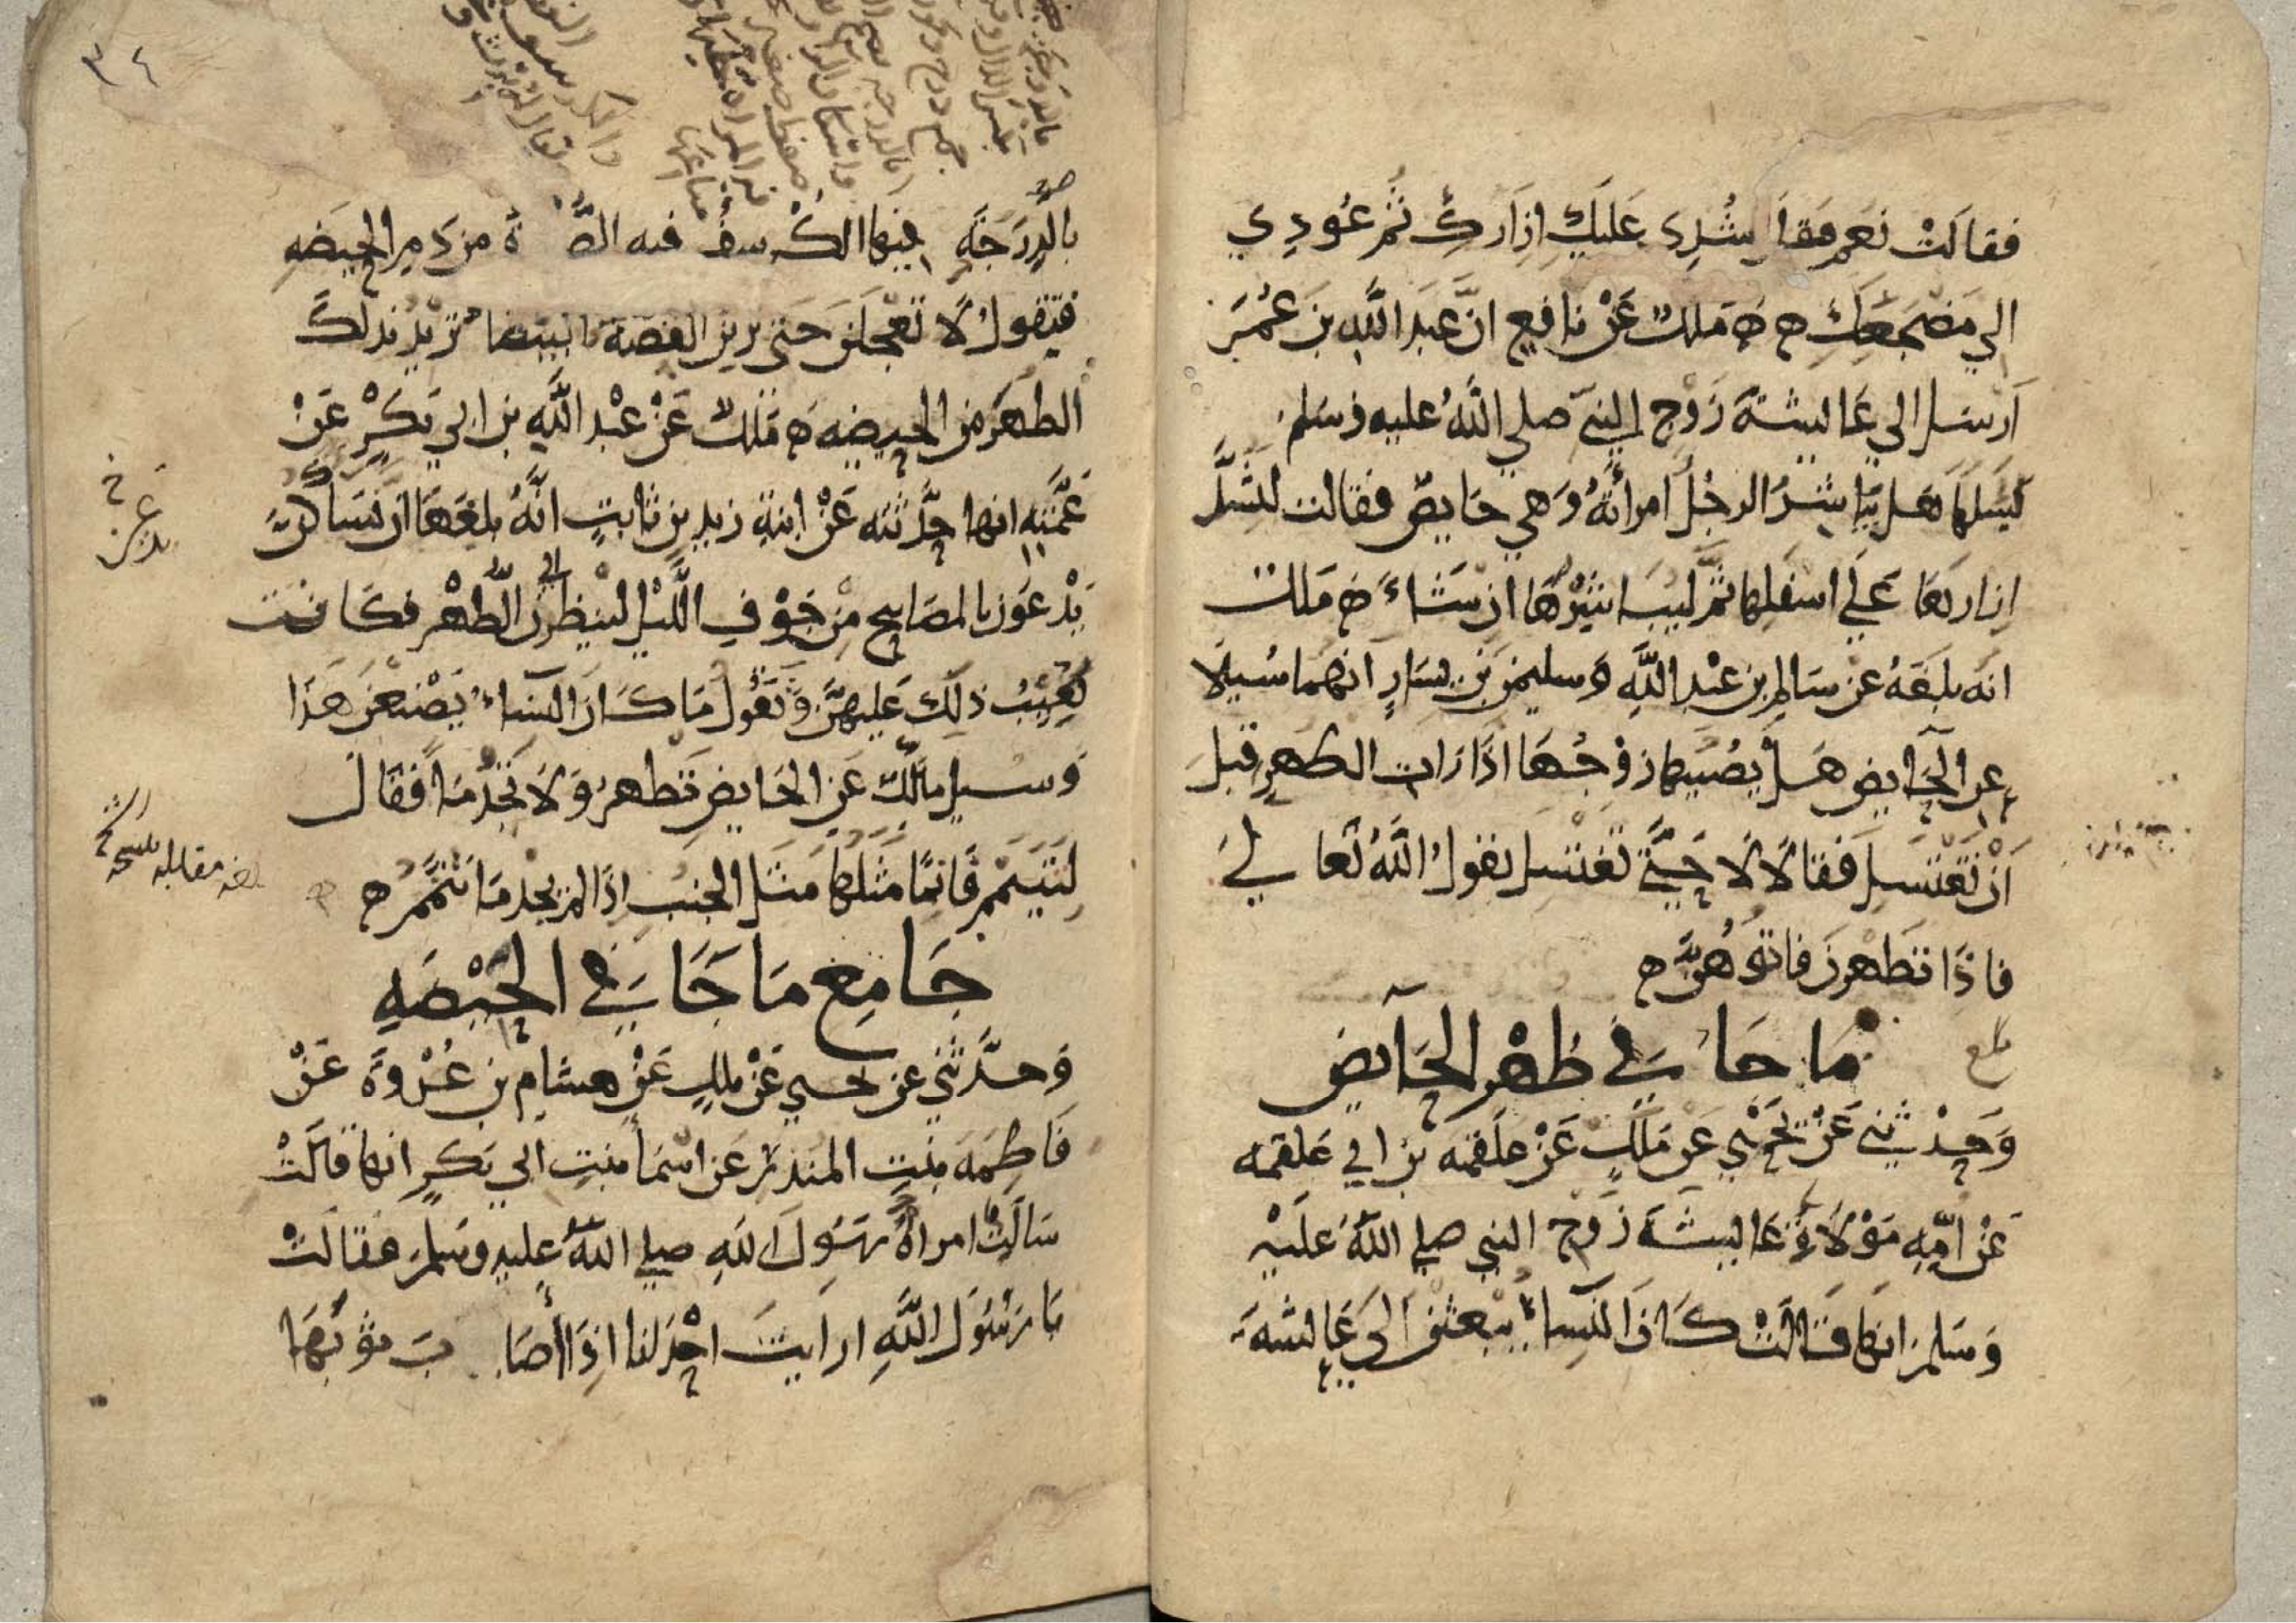 فقالت نعم فقال شدي عليك ازارك ثم عودي
الي مضجعك ه ه ملك عن نافع ان عبد الله بن عمر
ارسل الي عايشة زوج النبي صلي الله عليه وسلم
ليسلها هل يباشر الرجل امرأته وهي حايض فقالت لتشد
ازارها علي اسفلها ثم ليباشرها ان شاء ه ملك
انه بلغه عن سالم بن عبد الله وسليمن بن يسار انهما سيلا
عن الحايض هل يصيبها زوجها اذا رات الطهر قبل
أن تغتسل فقالا لا حتي تغتسل يقول الله تعالي
فاذا تطهرن فاتوهن ه
ما جا في طهر الحايض
بلغ
وحدثني عن يحيي عن ملك عن علقمه بن ابي علقمه
عن امه مولاة عايشة زوج النبي صلي الله عليه
وسلم انها قالت كان النساء يبعثن الي عايشه
٣٤
بالدرجه فيها الكرسف فيه الصفرة من دم الحيضه
فتقول لا تعجلن حتي ترين القصة البيضا تريد بذلك
الطهر من الحيضه ه ملك عن عبد الله بن ابي بكر عن
عمته انها حدثته عن ابنة زيد بن ثابت انه بلغها ان نسا كن
يدعون بالمصابيح من جوف الليل لينظرن الي الطهر فكانت
تعيب ذلك عليهن وتقول ما كان النساء يصنعن هذا
وسيل مالك عن الحايض تطهر ولا تجد ما فقال
لتتيمم فانما مثلها مثل الجنب اذا لم يجد ما تيمم ه
بلغ مقابله بنسخة
جامع ما جا في الحيضه
وحدثني عن يحيي عن ملك عن هشام بن عروة عن
فاطمه بنت المنذر عن اسما بنت ابي بكر انها قالت
سالت امراة رسول الله صلي الله عليه وسلم فقالت
يا رسول الله ارايت احدانا اذا أصاب ثوبها